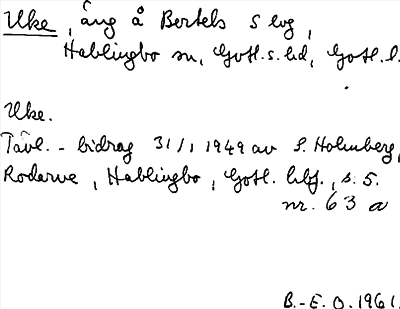 Uke, äng å Bertels s lvg,
Hablingbo sn, Gotl. s. hd, Gotl. l.
Uke.
Tävl. - bidrag 31/1 1949 av S. Holmberg,
Rodarve, Hablingbo, Gotl. hbf., s. 5.
nr. 63 a
B.-E. O. 1961.